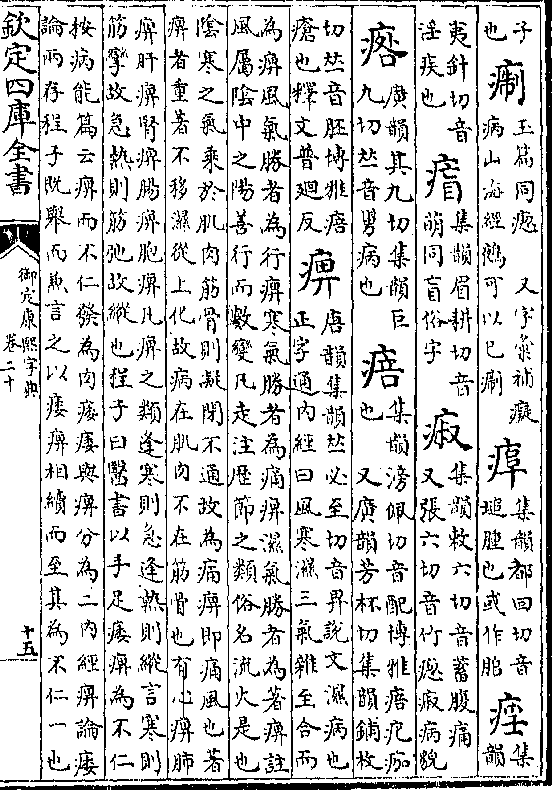 子
也
痸
玉篇同瘛 又字彙補癡
病山海經鵸可以已痸
集韻都回切音
膇腫也或作䏨
集
韻
夷針切音
淫疾也
集韻眉耕切音
萌同盲俗字
㾥
集韻敕六切音蓄腹痛
又張六切音竹瘛㾥病貌
廣韻其九切集韻巨
九切𠀤音舅病也
㾦
集韻滂佩切音配博雅㾦疕痂
也 又廣韻芳杯切集韻鋪枚
切𠀤音胚博雅㾦
瘡也釋文普廻反
痹
唐韻集韻𠀤必至切音畀說文濕病也
正字通內經曰風寒濕三氣雜至合而
為痹風氣勝者為行痹寒氣勝者為痛痹濕氣勝者為著痹註
風屬陰中之陽善行而數變凡走注歷節之類俗名流火是也
陰寒之氣乘於肌肉筋骨則凝閉不通故為痛痹即痛風也著
痹者重著不移濕從土化故病在肌肉不在筋骨也有心痹肺
痹肝痹腎痹腸痹胞痹凡痹之類逢寒則急逢熱則縱言寒則
筋攣故急熱則筋弛故縱也程子曰醫書以手足痿痹為不仁
按病能篇云痹而不仁發為肉痿痿與痹分為二內經痹論痿
論兩存程子既舉而兼言之以痿痹相續而至其為不仁一也
欽定四庫全書
御定康熙字典
卷二十
十五